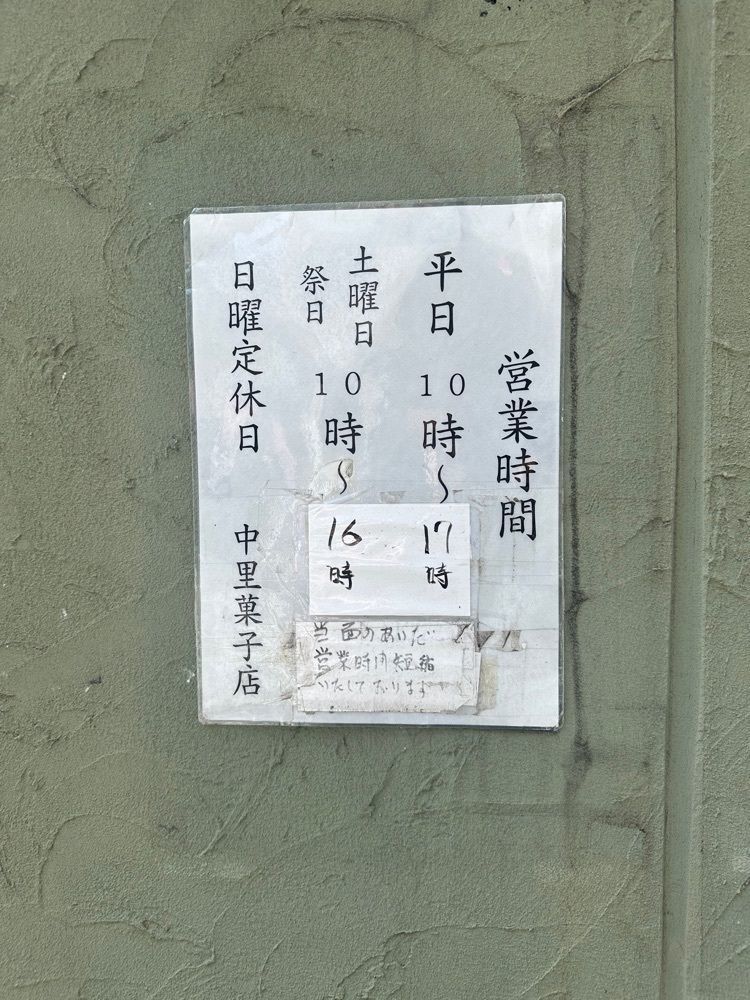 営業時間
平日 10時～17時
土曜日
祭日 10時～16時
日曜定休日 中里菓子店
当面のあいだ
営業時間短縮
いたしております